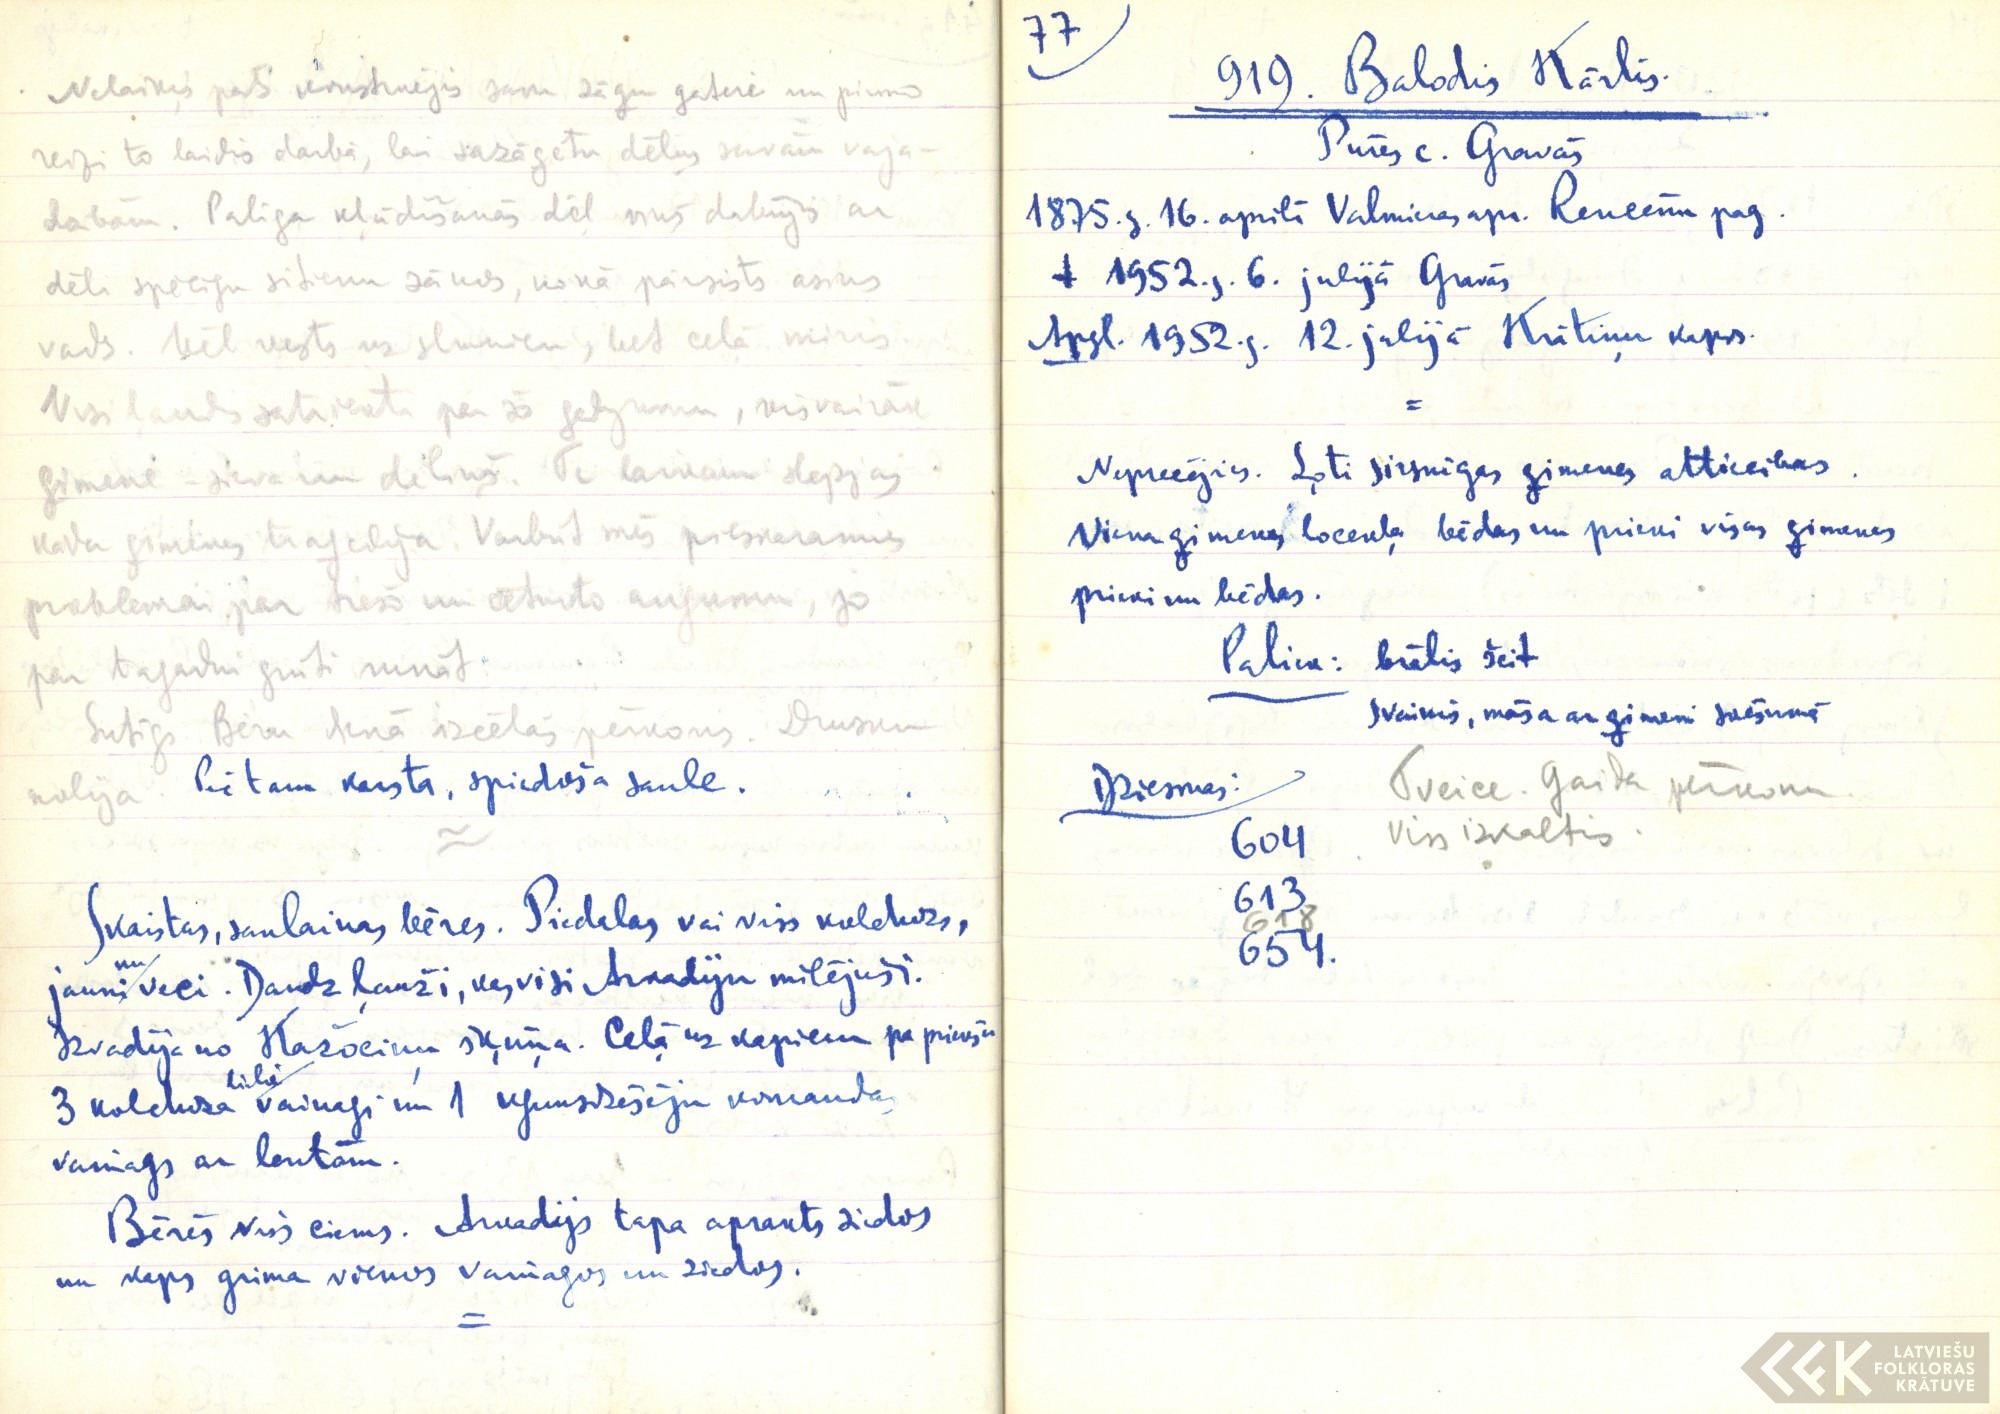 Nelaiķis pats konstruējis savu zāģu gateri un pirmo
reizi to laidis darbā, lai sazāģētu dēļus savām vaja-
dzībām. Palīga kļūdīšanās dēļ viņš dabūjis ar
dēli spēcīgu sitienu sānos, kokā pārsists asins
vads. Vēl vests uz slimnīcu, bet ceļā miris.
Visi ļaudis satriekti par šo gadījumu, visvairāk
ģimene - sieva un dēliņš. Te laikam slēpjas
kāda ģimenes traģēdija. Varbūt mēs pieskaramies
problēmai par trešo un ceturto augumu, jo
par tagadni grūti runāt.
Sutīgs. Bēru laikā izcēlās pērkons. Drusku
nolija. Pēc tam karsta, spiedoša saule.
≈
Skaistas, saulainas bēres. Piedalās vai viss kolchozs,
jauni un veci. Daudz ļaužu, kas visi Arkādiju mīlējuši.
Izvadīja no Kažociņu šķūņa. Ceļā uz kapiem pa priekšu
3 kolchoza lieli vainagi un 1 ugunsdzēsēju komandas
vainags ar lentām.
Bērēs viss ciems. Arkādijs tapa aprakts ziedos
un kaps grima vienos vainagos un ziedos.
=
77
919. Balodis Kārlis.
Pūres c. Gravās
1875.g. 16. aprīlī Valmieras apr. Rencēnu pag.
† 1952.g. 6. jūlijā Gravās
Apgl. 1952.g. 12. jūlijā Krātiņu kapos.
=
Neprecējies. Ļoti sirsnīgas ģimenes attiecības.
Viena ģimenes locekļa bēdas un prieki visas ģimenes
prieki un bēdas.
Paliek: brālis šeit
svainis, māsa ar ģimeni svešumā
Dziesmas: Tveice. Gaida pērkonu.
604 Viss izkaltis.
613
618
654.
LATVIEŠU
FOLKLORAS
KRĀTUVE